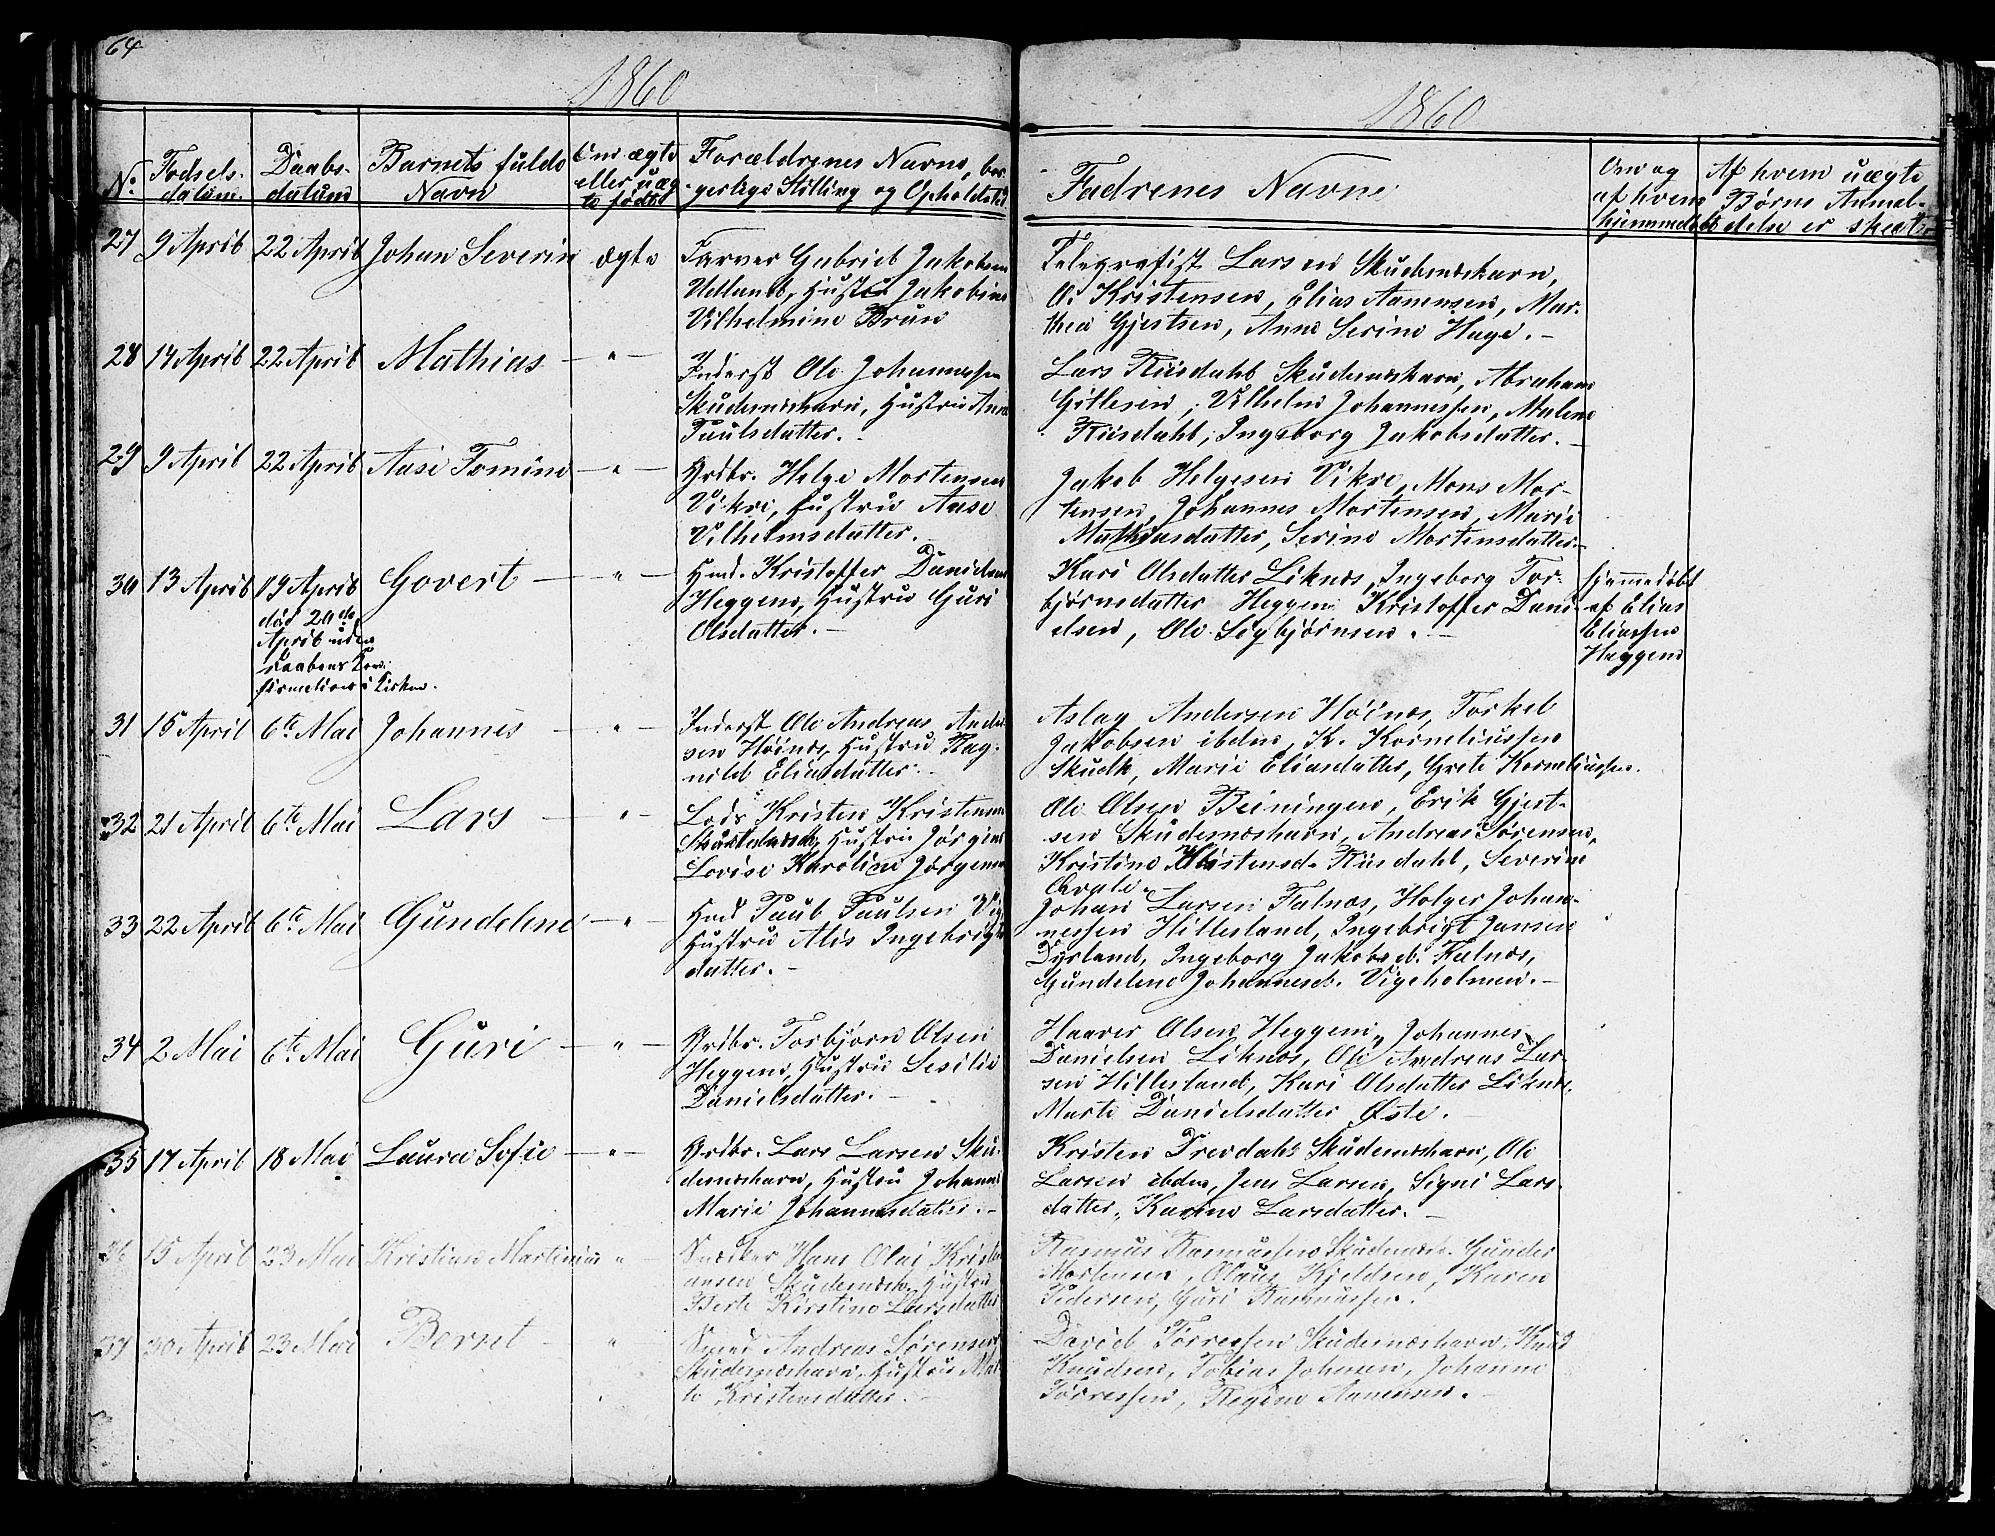 64
1860
1860
No. Fødsels-
datum.
Daabs-
datum
Barnets fulde
Navn
Om ægte
eller uæg
te født
Forældrenes Navne, bor-
gerlige Stilling og Opholdsted
Fadrenes Navne
Om og
af hvem
hjemmedøbt
Af hvem uægte
Børns Anmel-
delse er skeet
27 9 April 22 April Johan Severin ægte
Farver Gabriel Jakobsen
Udland, Hustru Jakobine
Vilhelmine Brun
Telegrafist Larsen Skudesneshavn,
O. Kristensen, Elias Aanensen, Mar-
thea Gjertsen, Anne Serine Hage. -
28 14 April 22 April Mathias - " -
Inderst Ole Johannesen
Skudesneshavn, Hustru Anne
Paulsdatter. -
Lars Risdahl Skudesneshavn, Abraham
Gitlesen, Vilhelm Johannessen, Malene
Risdahl, Ingeborg Jakobsdatter. -
29 9 April 22 April Aase Tomine - " -
Grdbr. Helge Mortensen
Vikre, Hustru Aase
Vilhelmsdatter. -
Jakob Helgesen Vikre, Mons Mor-
tensen, Johannes Mortensen, Marie
Mathiasdatter, Serine Mortensdatter -
30 13 April 19 April Govert - " -
død 20de
April uden
Daabens Kon-
firmation i Kirken.
Hmd. Kristoffer Danielsen
Heggem, Hustru Guri
Olsdatter. -
Kari Olsdatter Liknes, Ingeborg Tor-
bjørnsdatter Heggem Kristoffer Dani-
elsen, Ole Sigbjørnsen. -
hjemmedøbt
af Elias
Eliassen
Heggem
31 15 April 6te Mai Johannes - " -
Inderst Ole Andreas Ander
sen Høines, Hustru Rag-
nild Eliasdatter. -
Aslag Andersen Høines, Torkel
Jakobsen ibdm, K. Korneliussen
Skudh, Marie Eliasdatter, Grete Korneliussen.
32 21 April 6te Mai Lars - " -
Lods Kristen Kristensen
Hustru Jørgine
Lovise Karoline Jørgensen
Ole Olsen Beiningen, Erik Gjert-
sen Skudesneshavn, Andreas Sørensen,
Kristine Kristensd. Risdahl, Severine
Qvale.
33 22 April 6te Mai Gundelene - " -
Hmd Paul Paulsen
Hustru Alis Ingebrigts
datter. -
Johan Larsen Falnes, Holger Johan-
nessen Hillesland, Ingebrigt Jansen
Dysland, Ingeborg Jakobsd. Falnes,
Gundelene Johannesd. Vigeholmen. -
34 2 Mai 6te Mai Guri - " -
Grdbr. Torbjørn Olsen
Heggem, Hustru Sesilie
Danielsdatter. -
Haaver Olsen Heggem, Johannes
Danielsen Liknes, Ole Andreas Lar-
sen Hillesland, Kari Olsdatter Liknes,
Marte Danielsdatter Øste. -
35 17 April 18 Mai Laura Sofie - " -
Grdbr. Lars Larsen Sku-
desneshavn, Hustru Johanne
Marie Johannesdatter. -
Kristen Trevdahl Skudesneshavn, Ole
Larsen ibdm, Jens Larsen, Signi Lars-
datter, Karine Larsdatter. -
36 15 April 23 Mai Kristian Martinius "
Snedker Hans Olai Kristi
ansen Skudesnesh, Hustru
Berte Kirstine Larsdatter
Rasmus Rasmussen Skudesnesh. Gunder
Mortensen, Olaus Kjeldsen, Karen
Pedersen, Guri Rasmussen.
37 30 April 23 Mai Bernt - "
Smed Andreas Sørensen
Skudesneshavn, Hustru Mal-
le Kristensdatter. -
David Tørressen Skudesneshavn, Knud
Knudsen, Tobias Johnsen, Johanne
Tørressen, Regine Aanensen. -